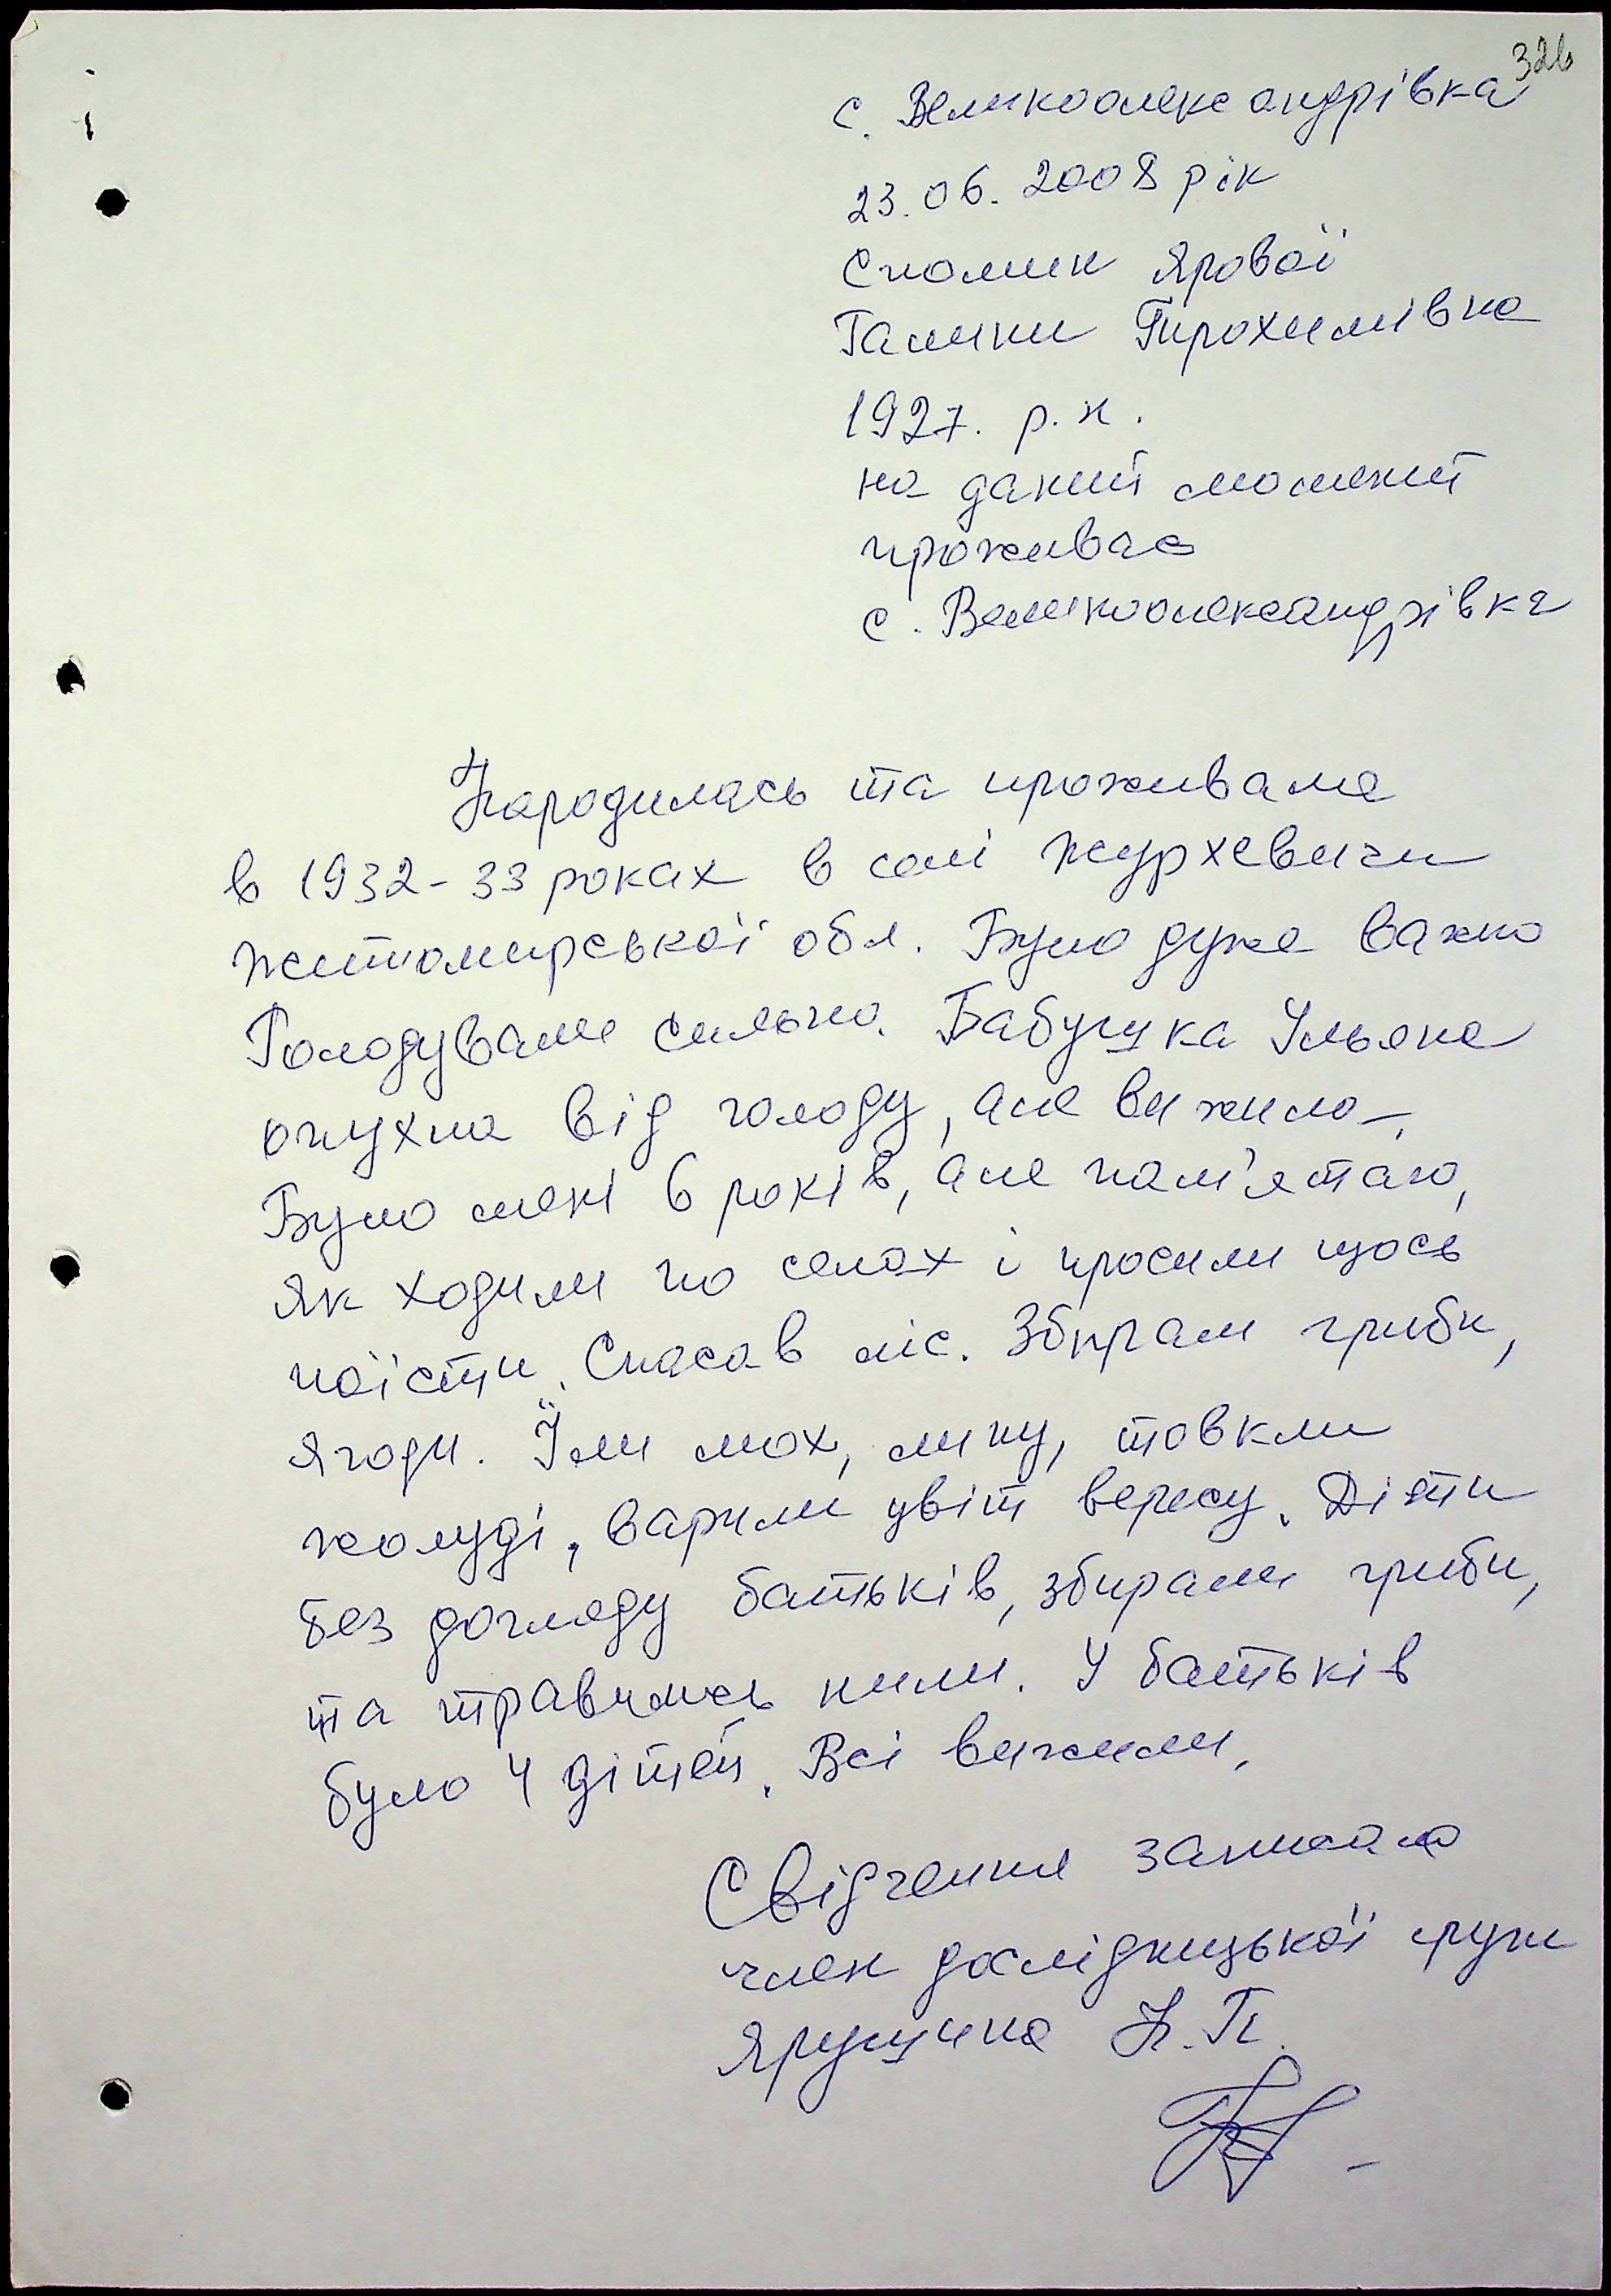 32в
с. Великоолександрівка
23.06.2008 рік
Спомин Ярової
Галини Трохимівна
1927. р. н.
на даний момент
проживає
с. Великоолександрівка
Народилась та проживала
в 1932-33 роках в селі Журжевичи
Житомирської обл. Було дуже важко
Голодували сильно. Бабушка Ульяна
опухла від голоду, але вижила.
Було мені 6 років, але пам'ятаю,
як ходили по селах і просили щось
поїсти. Спасав ліс. Збирали гриби,
ягоди. Їли мох, липу, товкли
жолуді, варили цвіт вересу. Діти
без догляду батьків, збирали гриби,
та травились ними. У батьків
було 4 дітей. Всі вижили.
Свідчення записала
член дослідницької групи
Н. П.